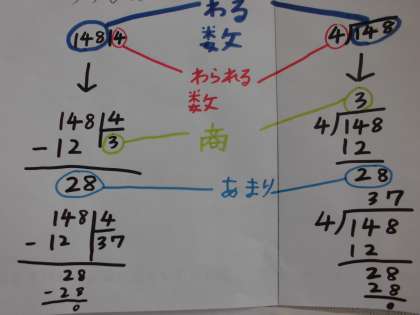 わる
数
148 4
4 148
わられる
数
148 4
- 12 3
28
商
3
4 148
12
28
あまり
148 4
- 12 37
28
- 28
0
37
4 148
12
28
28
0